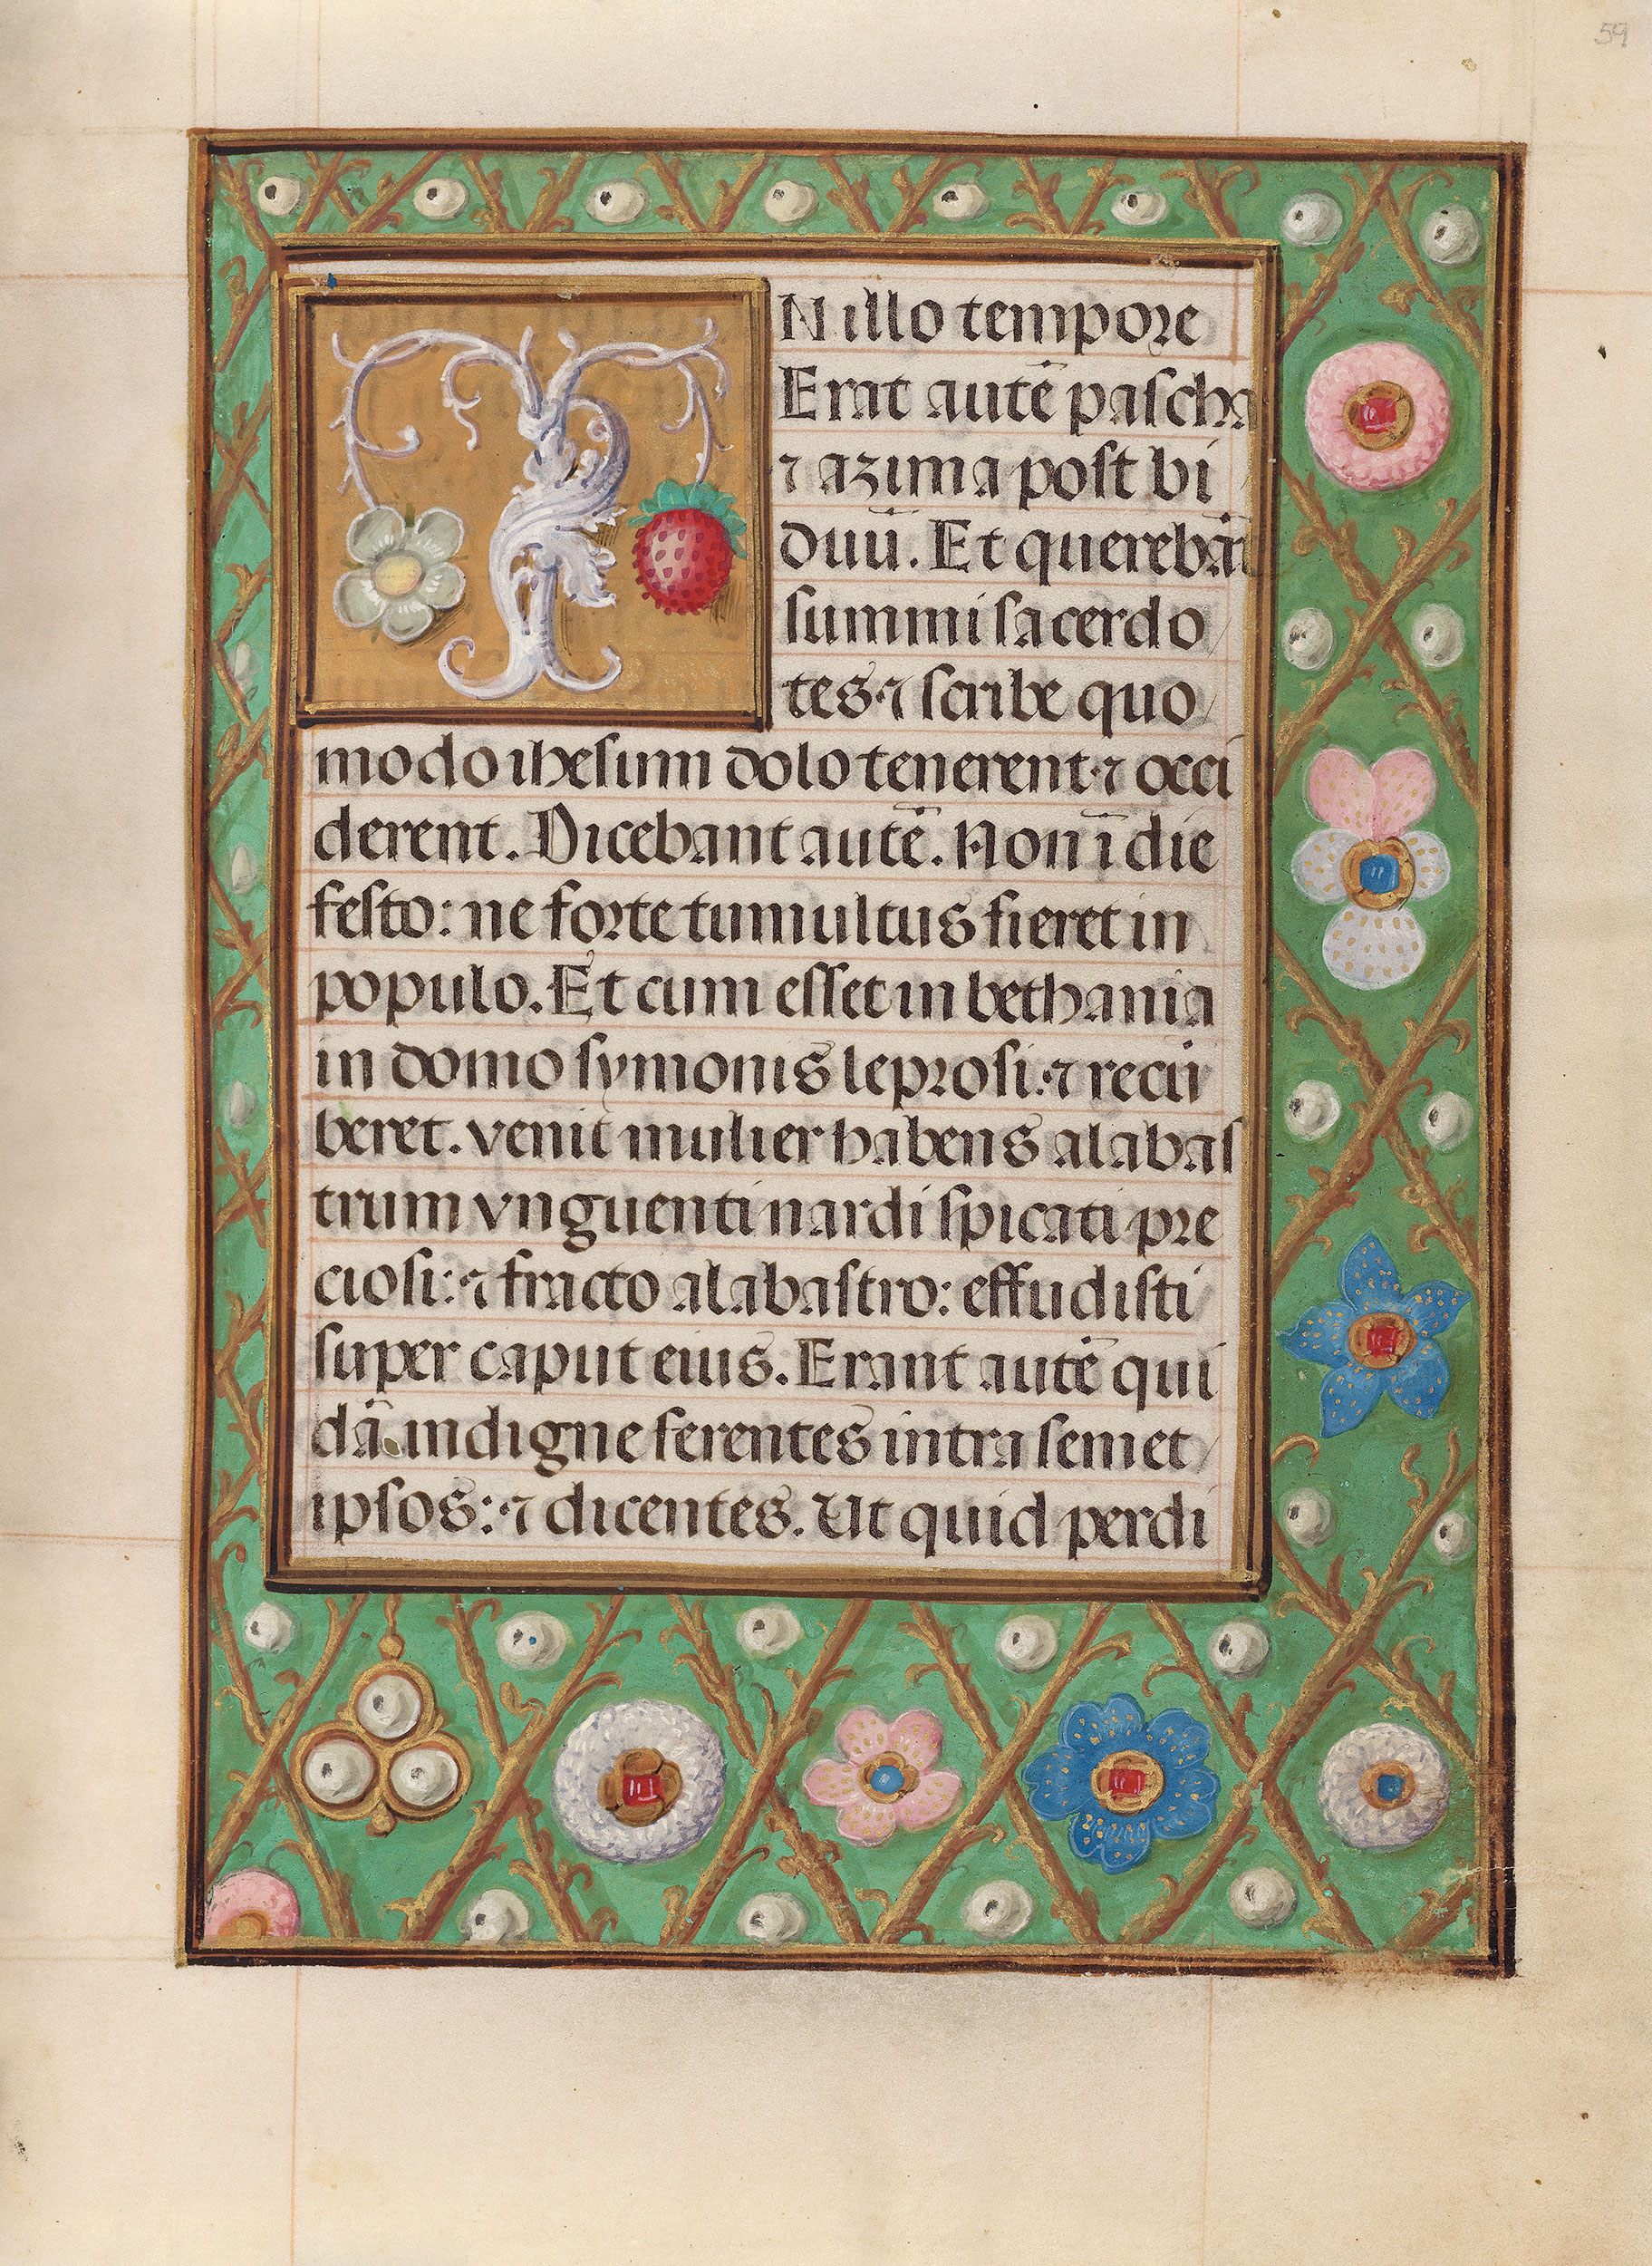 59
IN illo tempore
Erat autē pascha
⁊ azima post bi
duū. Et querebāt
summi sacerdo
tes ⁊ scribe quo
modo ihesum dolo tenerent ⁊ occi
derent. Dicebant autē. Non ī die
festo: ne forte tumultus fieret in
populo. Et cum esset in bethania
in domo symonis leprosi: ⁊ recū
beret. venit mulier habens alabas
trum vnguenti nardi spicati pre
ciosi: ⁊ fracto alabastro: effudisti
super caput eius. Erant autē qui
dā indigne ferentes intra semet
ipsos: ⁊ dicentes. Ut quid perdi